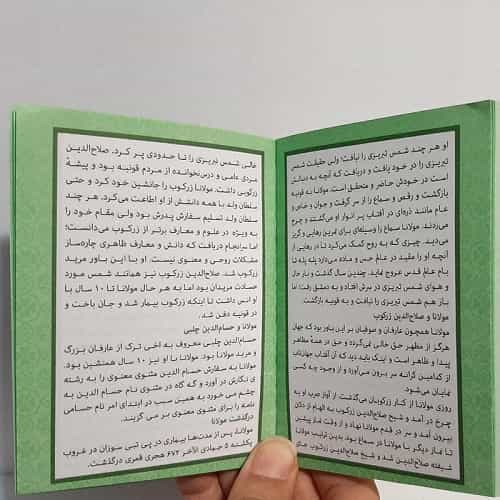 او هر چند شمس تبریزی را نیافت؛ ولی حقیقت شمس
تبریزی را در خود یافت و دریافت که آنچه به دنبالش
است در خودش حاضر و متحقق است. مولانا به قونیه
بازگشت و رقص و سماع را از سر گرفت و جوان و خاص و
عام مانند ذره‌ای در آفتاب پر انوار او می‌گشتند و چرخ
می‌زدند. مولانا سماع را وسیله‌ای برای تمرین رهایی و گریز
می‌دید. چیزی که به روح کمک می‌کرد تا در رهایی از
آنچه او را مقید در عالم حس و ماده می‌دارد پله پله تا
بام عالم قدس عروج نماید. چندین سال گذشت و باز حال
و هوای شمس تبریزی در سرش افتاد و به دمشق رفت؛ اما
باز هم شمس تبریزی را نیافت و به قونیه بازگشت.
مولانا و صلاح‌الدین زرکوب
مولانا همچون عارفان و صوفیان بر این باور بود که جهان
هرگز از مظهر حق خالی نمی‌گردد و حق در همهٔ مظاهر
پیدا و ظاهر است و اینک باید دید که آن آفتاب جهان‌تاب
از کدامین کرانه سر برون می‌آورد و از وجود چه کسی
نمایان می‌شود.
روزی مولانا از کنار زرکوبان می‌گذشت. از آواز ضرب او به
چرخ در آمد و شیخ صلاح‌الدین زرکوب به الهام از دکان
بیرون آمد و سر در قدم مولانا نهاد و از وقت نماز پیشین
تا نماز دیگر با مولانا در سماع بود. بدین ترتیب مولانا
شیفته صلاح‌الدین شد و شیخ صلاح‌الدین زرکوب جای
خالی شمس تبریزی را تا حدودی پر کرد. صلاح‌الدین
مردی عامی و درس‌نخوانده از مردم قونیه بود و پیشهٔ
زرکوبی داشت. مولانا زرکوب را جانشین خود کرد و حتی
سلطان ولد با همه دانشش از او اطاعت می‌کرد. هر چند
سلطان ولد تسلیم سفارش پدرش بود ولی مقام خود را
به ویژه در علوم و معارف برتر از زرکوب می‌دانست؛
اما سرانجام دریافت که دانش و معارف ظاهری چاره‌ساز
مشکلات روحی و معنوی نیست. او با این باور مرید
زرکوب شد. صلاح‌الدین زرکوب نیز همانند شمس مورد
حسادت مریدان بود اما به هر حال مولانا تا ۱۰ سال با
او انس داشت تا اینکه زرکوب بیمار شد و جان باخت و
در قونیه دفن شد.
مولانا و حسام‌الدین چلبی
حسام‌الدین چلبی معروف به اخی ترک از عارفان بزرگ
و مرید مولانا بود. مولانا با او نیز ۱۰ سال همنشین بود.
مولانا به سفارش حسام‌الدین مثنوی معنوی را به رشته
ی نگارش در آورد و گه گاه در مثنوی نام حسام الدین به
چشم می خورد به همین سبب در ابتدای امر نام حسامی
نامه را برای مثنوی معنوی بر می گزیند.
درگذشت مولانا
مولانا، پس از مدت‌ها بیماری در پی تبی سوزان در غروب
یکشنبه ۵ جمادی الآخر ۶۷۲ هجری قمری درگذشت.